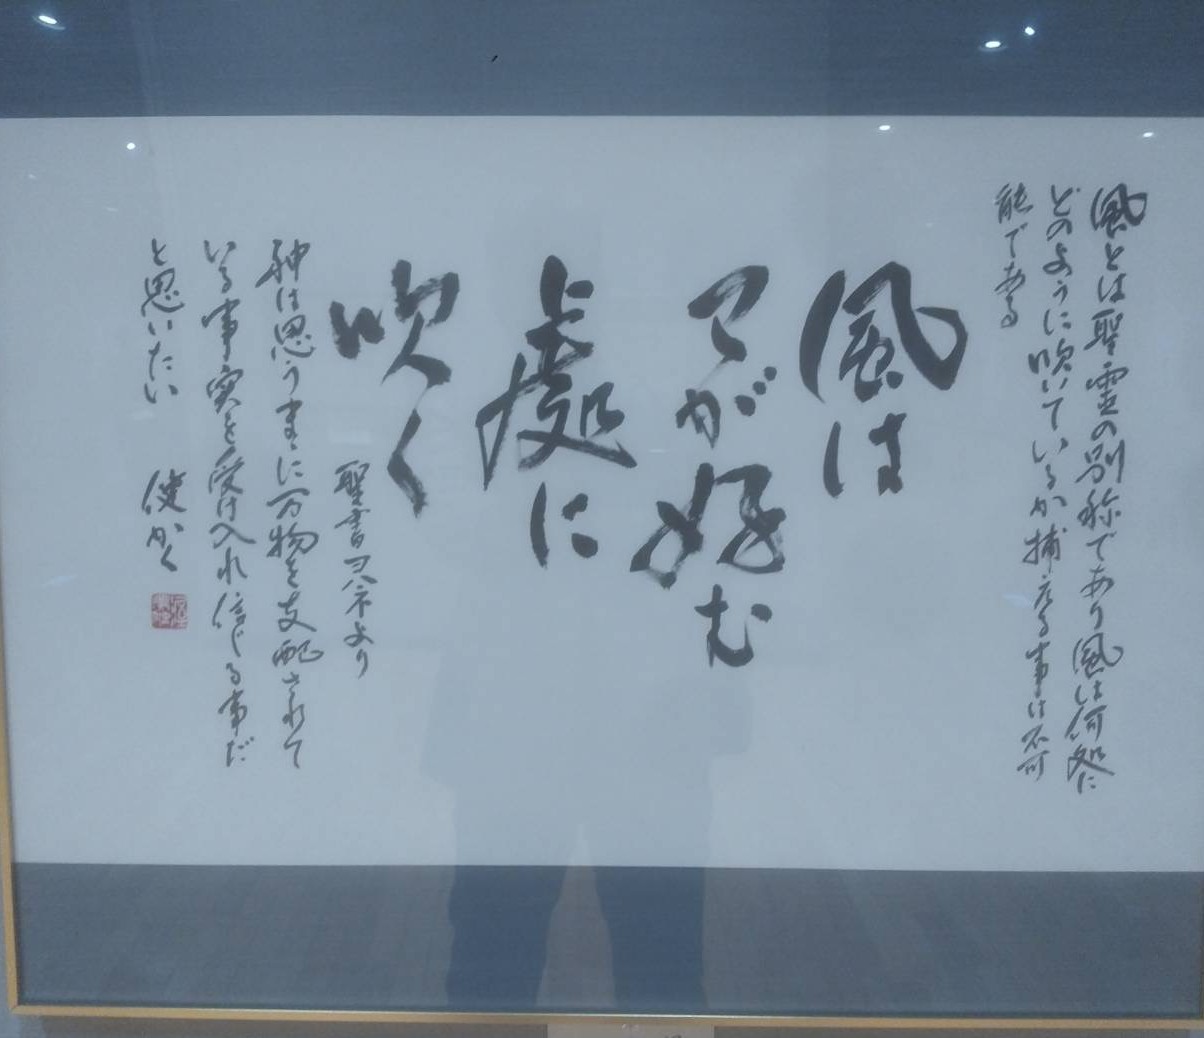 風とは聖霊の別称であり風は何処に
どのように吹いているか捕える事は不可
能である
風は
己が好む
處に
吹く
聖書ヨハネより
神は思うままに万物を支配されて
いる事実を受け入れ信じる事だ
と思いたい かく